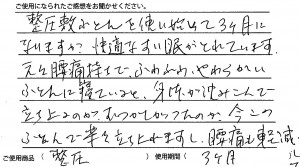 ご使用になられたご感想をお聞かせください。
整圧敷ふとんを使い始めて3ヶ月に
なりますが、快適なすい眠がとれています。
元々腰痛持ちで、ふわふわ、やわらかい
ふとんに寝ていると、身体が沈みこんで
立ち上るのが、むつかしかったのが、今この
ふとんで楽々立ち上れますし、腰痛も軽減
ご使用商品（ 整圧 ）使用期間（ 3ヶ月